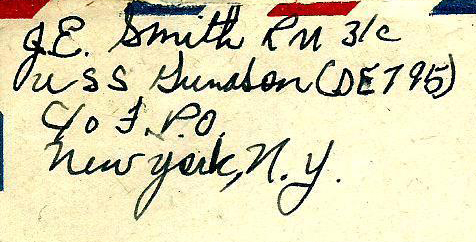 J.E. Smith RM 3/c
USS Gunason (DE795)
C/o F.P.O.
New York, N.Y.